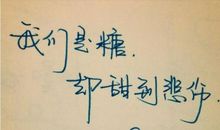 我们是糖.
却甜到悲伤.